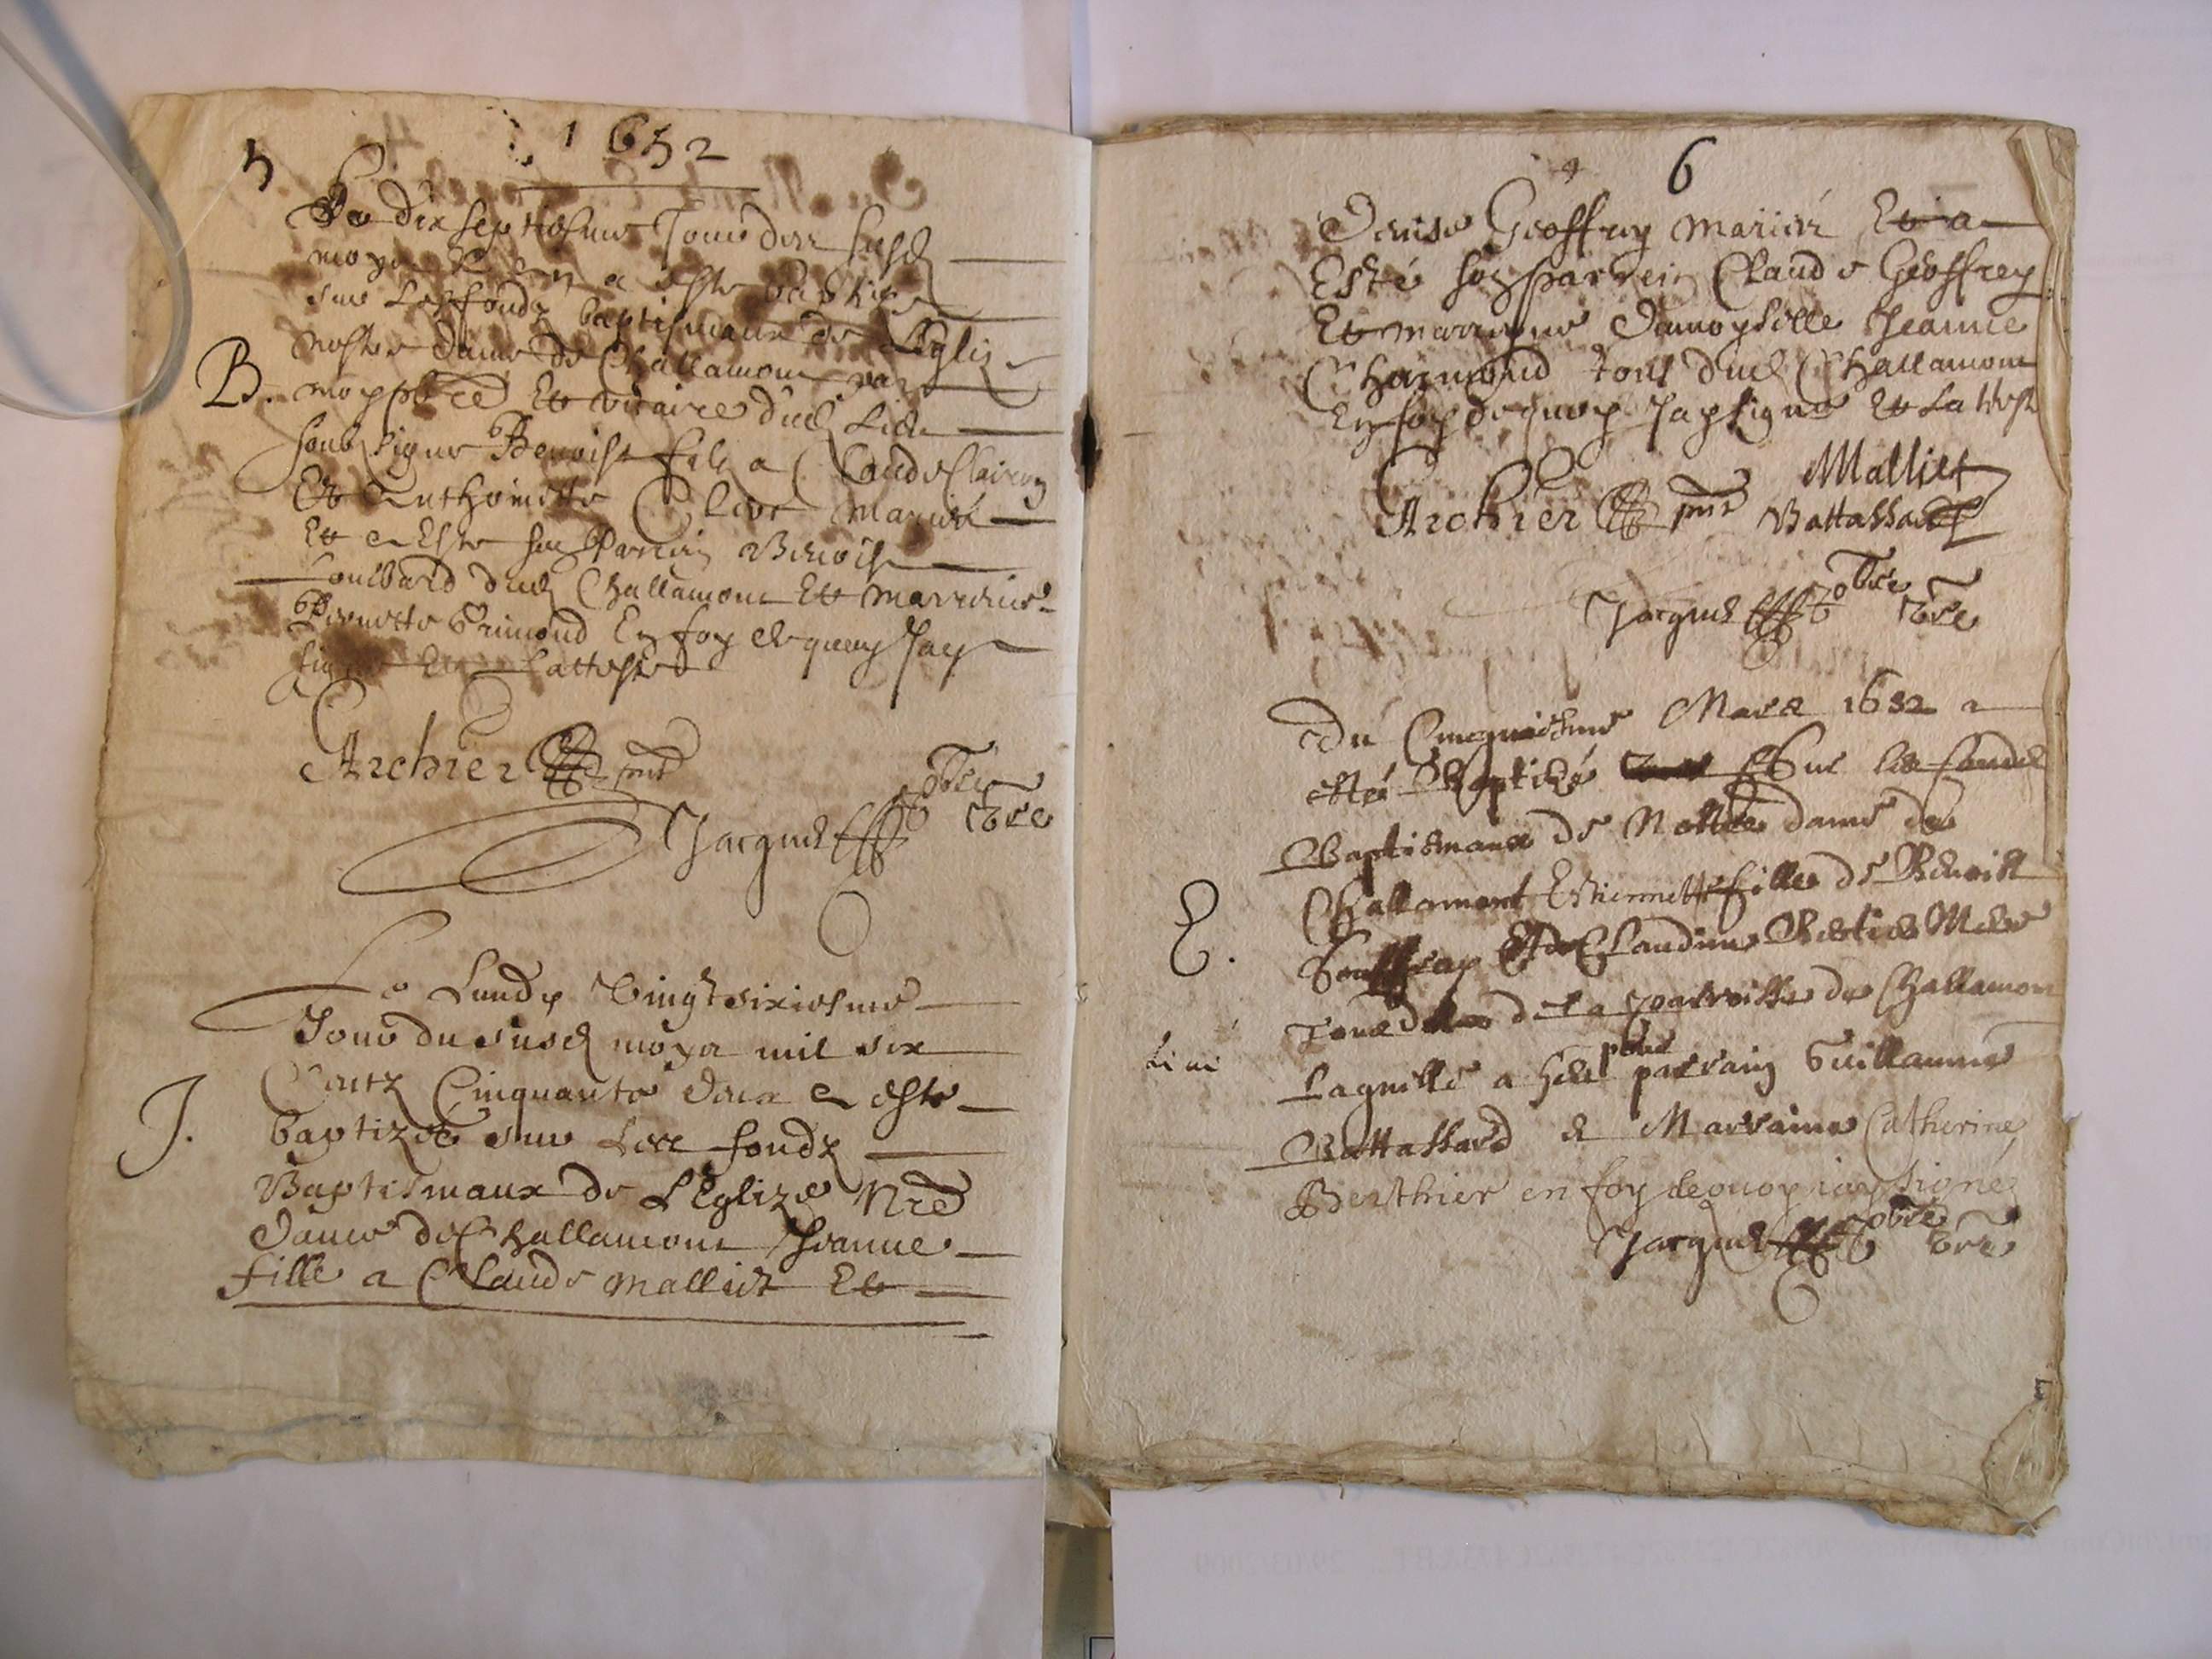 5
1652
Le dix septiesme Jour des susd
moys et an a este baptise
sur Les fondz baptismaux de LEglize
Nostre dame de Challamont par
B. moy pbre Et vicaire dud Lieu
soubsigne Benoist filz a Claude Clairon
Et Anthoinette Clere mariés
Et a Este son Parrein Benoist
dud Challamont Et marreine
Pernette Grimond En foy de quoy Jay
signe Et Latteste
Archier pnt
Jacques pbre vre
Le Lundy Vingtsixiesme
Jour du susd moys mil six
J.
Centz Cinquante deux a este
baptizée sur Les fondz
Baptismaux de LEglize Nre
dame de Challamont Jeanne
fille a Claude Malliet Et
6
Denise Geoffray Mariés Et a
Esté son parrein Claude Geoffrey
Et marreine damoyselle Jeanne
Charmond tous dud Challamont
En foy de quoy Jay signe Et Latteste
Malliet
Archier pnt Battassard
Jacques pbre vre
Du Cinquiesme Mars 1652 a
esté Baptizé sur les fondz
Baptismaux de Nostre dame de
Challamont Estiennette fille de Benoist
E.
Et de Claudine
Tous de la parroisse de Challamont
Laquelle a heu pour parrain Guillaume
Battassard & Marraine Catherine
Berthier en foy de quoy iay signé
Jacques pbre vre